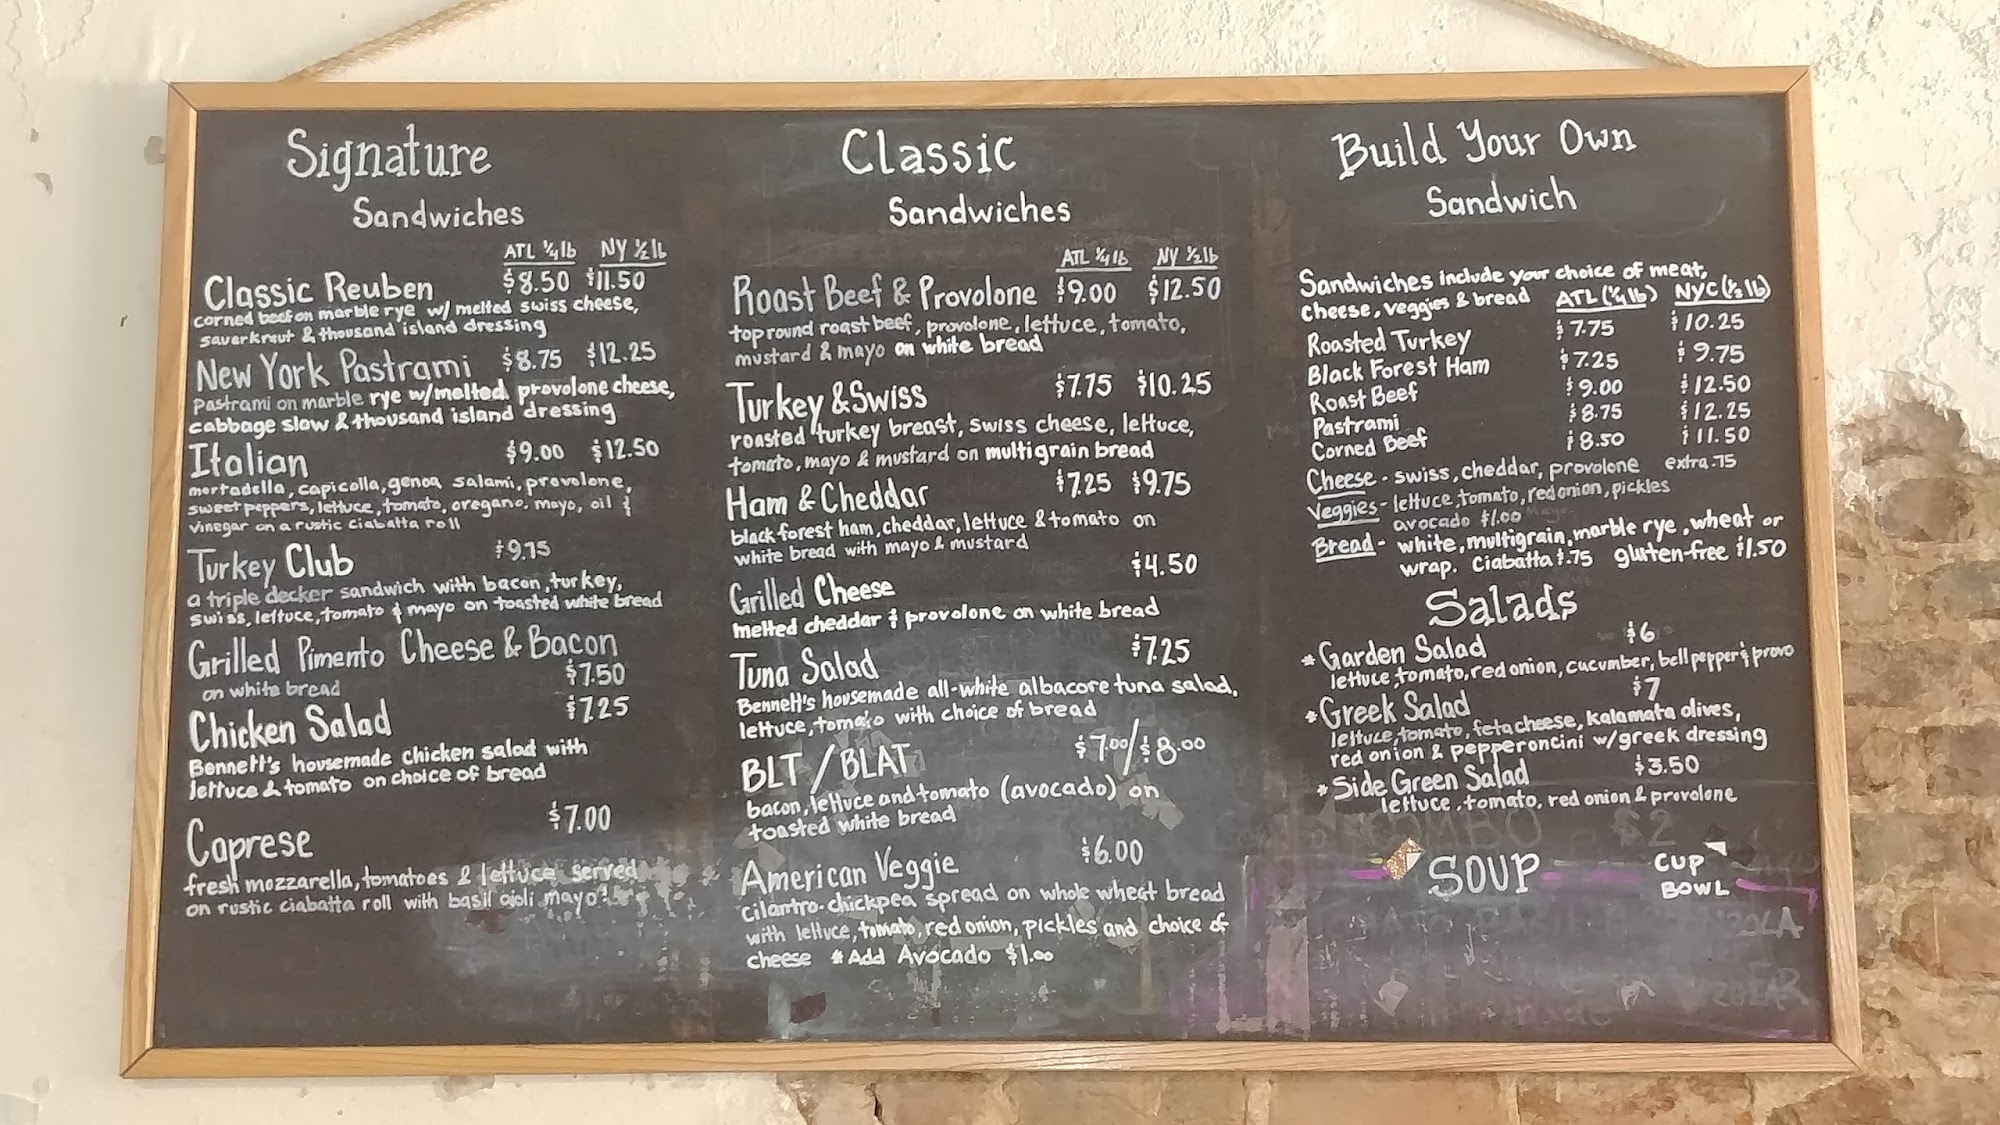 Signature
Sandwiches
ATL ¼lb NY ½lb
Classic Reuben $8.50 $11.50
corned beef on marble rye w/ melted swiss cheese,
sauerkraut & thousand island dressing
New York Pastrami $8.75 $12.25
Pastrami on marble rye w/melted provolone cheese,
cabbage slaw & thousand island dressing
Italian $9.00 $12.50
mortadella, capicolla, genoa salami, provolone,
sweet peppers, lettuce, tomato, oregano, mayo, oil &
vinegar on a rustic ciabatta roll
Turkey Club $9.75
a triple decker sandwich with bacon, turkey,
swiss, lettuce, tomato & mayo on toasted white bread
Grilled Pimento Cheese & Bacon
on white bread $7.50
Chicken Salad $7.25
Bennett's housemade chicken salad with
lettuce & tomato on choice of bread
Caprese $7.00
fresh mozzarella, tomatoes & lettuce served
on rustic ciabatta roll with basil aioli mayo
Classic
Sandwiches
ATL ¼lb NY ½lb
Roast Beef & Provolone $9.00 $12.50
top round roast beef, provolone, lettuce, tomato,
mustard & mayo on white bread
Turkey & Swiss $7.75 $10.25
roasted turkey breast, swiss cheese, lettuce,
tomato, mayo & mustard on multigrain bread
Ham & Cheddar $7.25 $9.75
black forest ham, cheddar, lettuce & tomato on
white bread with mayo & mustard
Grilled Cheese $4.50
melted cheddar & provolone on white bread
Tuna Salad $7.25
Bennett's housemade all-white albacore tuna salad,
lettuce, tomato with choice of bread
BLT/BLAT $7.00/$8.00
bacon, lettuce and tomato (avocado) on
toasted white bread
American Veggie $6.00
cilantro-chickpea spread on whole wheat bread
with lettuce, tomato, red onion, pickles and choice of
cheese *Add Avocado $1.00
Build Your Own
Sandwich
Sandwiches include your choice of meat,
cheese, veggies & bread ATL (¼ lb) NYC (½ lb)
Roasted Turkey $7.75 $10.25
Black Forest Ham $7.25 $9.75
Roast Beef $9.00 $12.50
Pastrami $8.75 $12.25
Corned Beef $8.50 $11.50
Cheese - swiss, cheddar, provolone extra .75
Veggies - lettuce, tomato, red onion, pickles
avocado $1.00
Bread - white, multigrain, marble rye, wheat or
wrap. Ciabatta $.75 gluten-free $1.50
Salads
*Garden Salad $6
lettuce, tomato, red onion, cucumber, bell pepper & provo
*Greek Salad $7
lettuce, tomato, feta cheese, kalamata olives,
red onion & pepperoncini w/greek dressing
*Side Green Salad $3.50
lettuce, tomato, red onion & provolone
SOUP CUP
BOWL